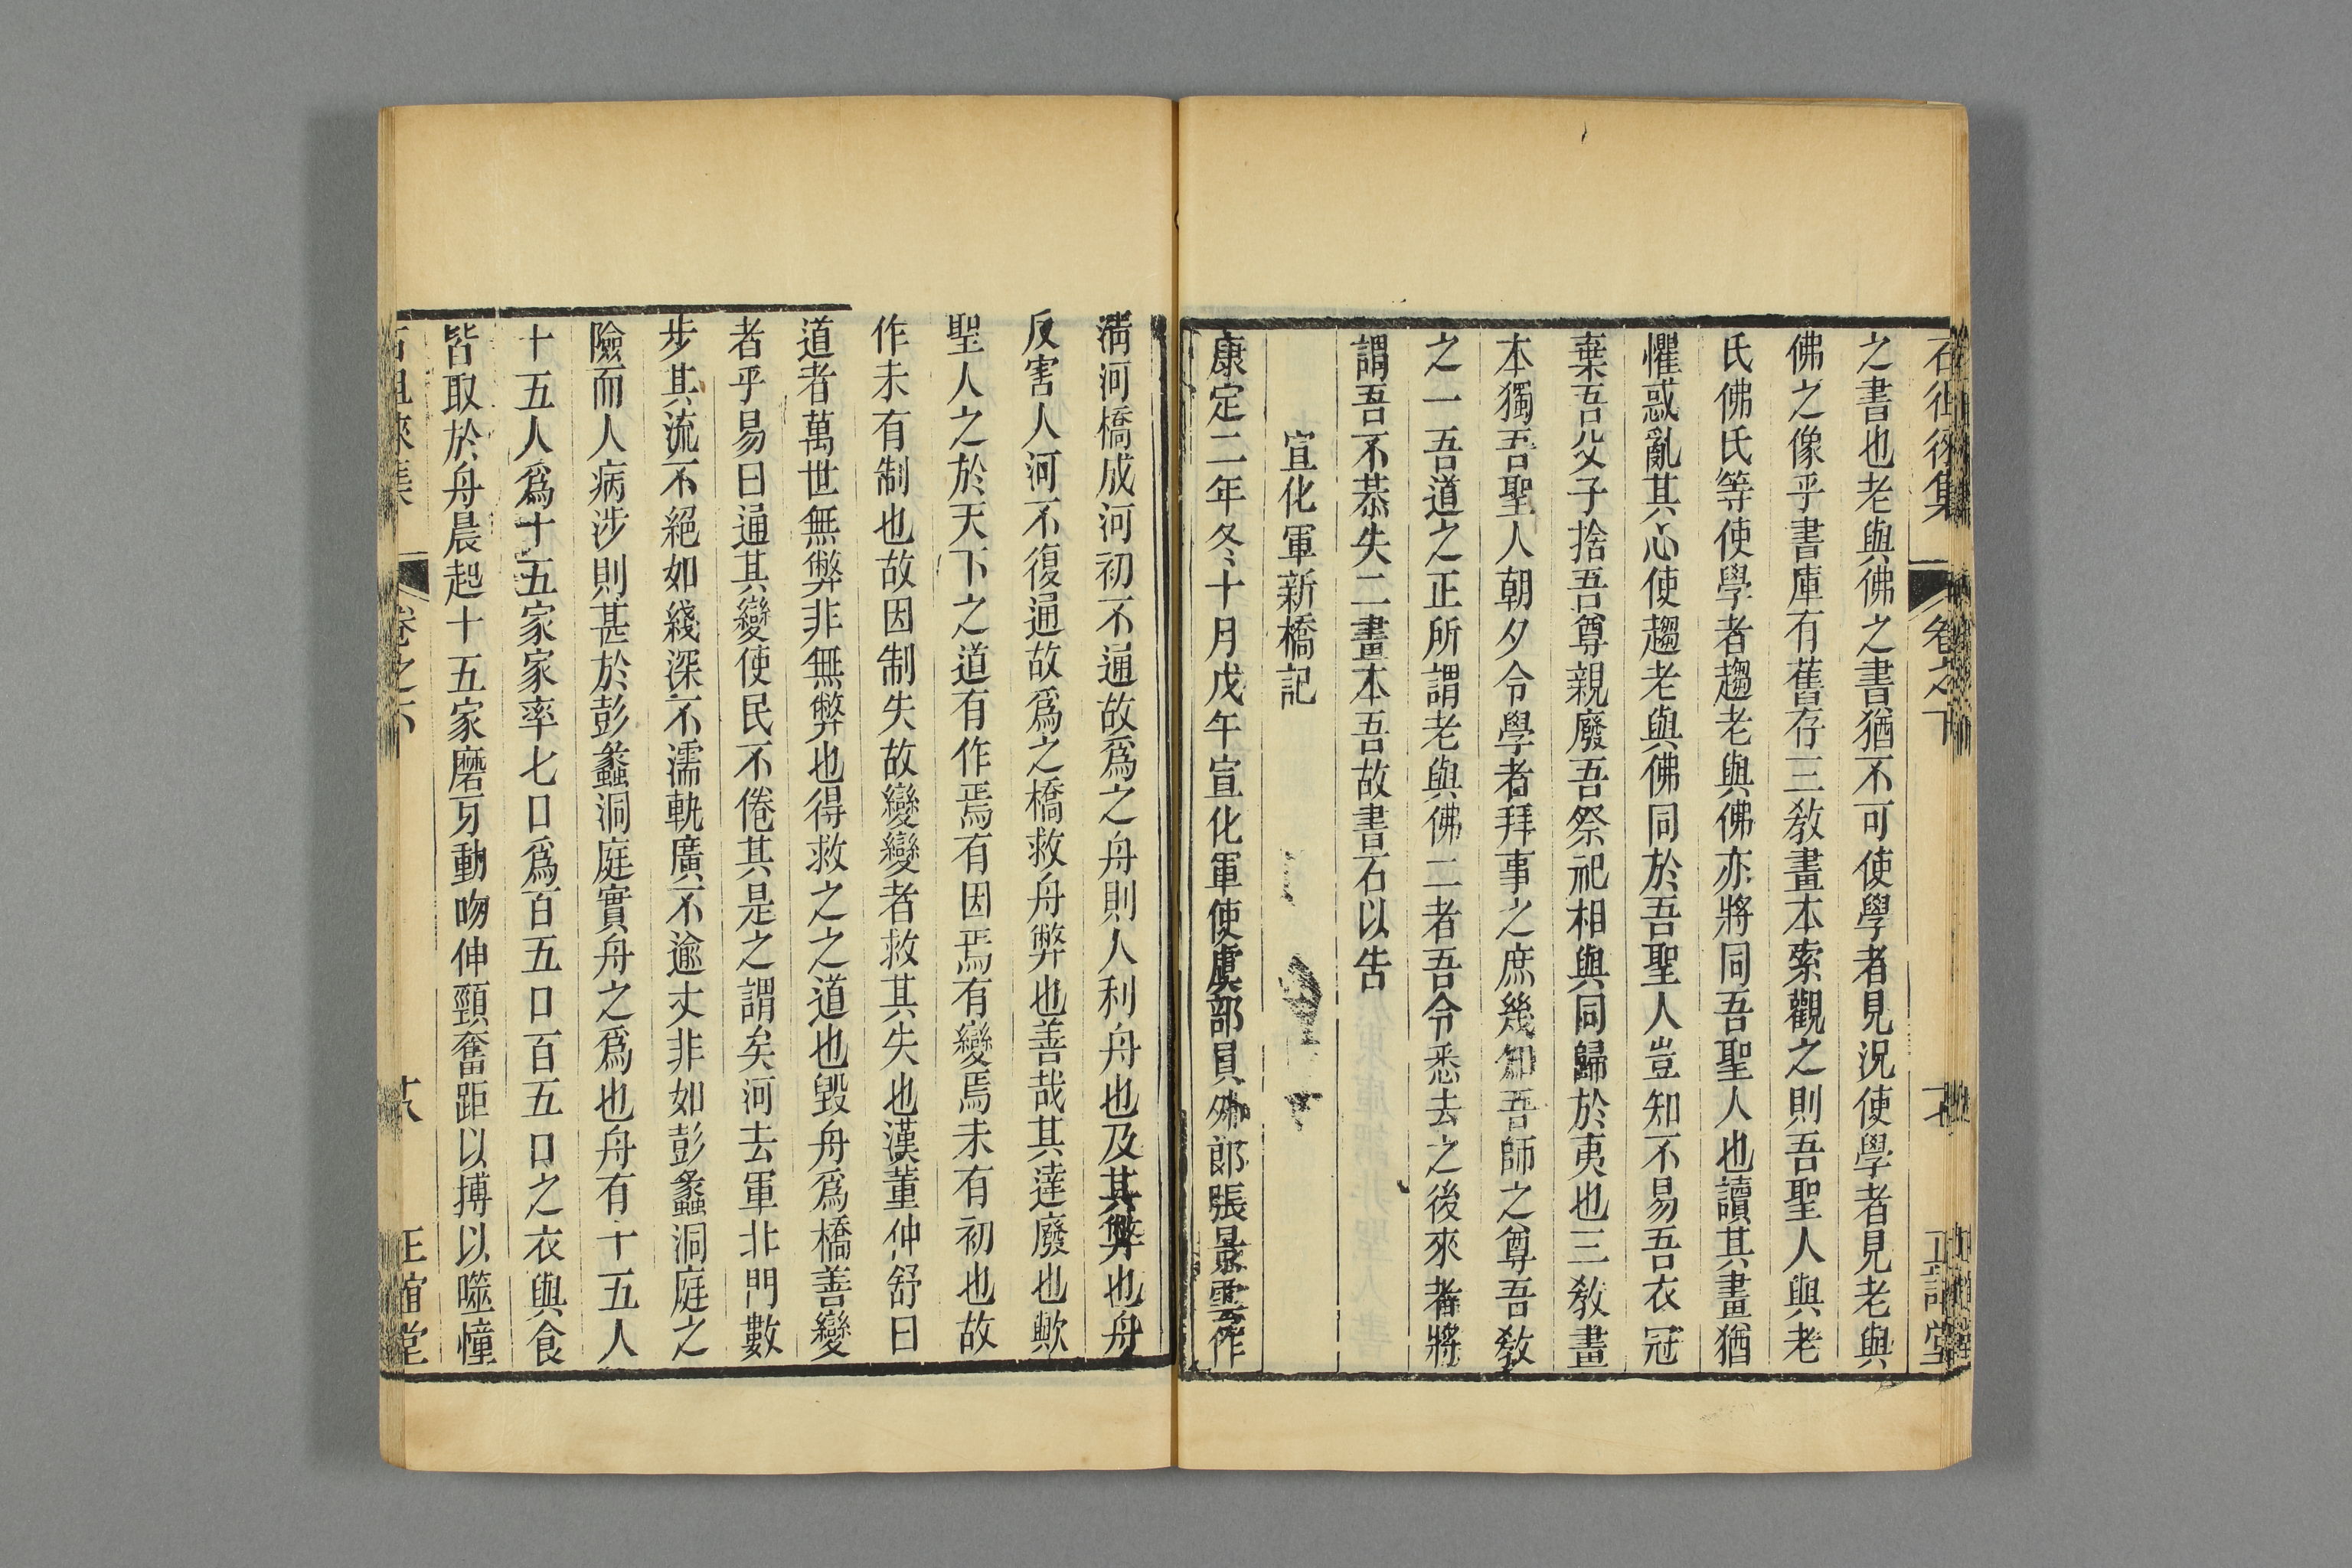 之書也老與佛之書猶不可使學者見況使學者見老與
佛之像乎書庫有舊存三敎畫本索觀之則吾聖人與老
氏佛氏等使學者趨老與佛亦將同吾聖人也讀其畫猶
懼惑亂其心使趨老與佛同於吾聖人豈知不易吾衣冠
棄吾父子捨吾尊親廢吾祭祀相與同歸於夷也三敎畫
本獨吾聖人朝夕令學者拜事之庶幾知吾師之尊吾敎
之一吾道之正所謂老與佛二者吾令悉去之後來者將
謂吾不恭失二畫本吾故書石以告
宣化軍新橋記
康定二年冬十月戊午宣化軍使虞部員外郎張景雲作
淸河橋成河初不通故爲之舟則人利舟也及其弊也舟
反害人河不復通故爲之橋救舟弊也善哉其達廢也歟
聖人之於天下之道有作焉有因焉有變焉未有初也故
作未有制也故因制失故變變者救其失也漢董仲舒曰
道者萬世無弊非無弊也得救之之道也毀舟爲橋善變
者乎易曰通其變使民不倦其是之謂矣河去軍北門數
步其流不絕如綫深不濡軌廣不逾丈非如彭蠡洞庭之
險而人病涉則甚於彭蠡洞庭實舟之爲也舟有十五人
十五人爲十五家家率七口爲百五口百五口之衣與食
皆取於舟晨起十五家磨牙動吻伸頸奮距以搏以噬憧
卷之下